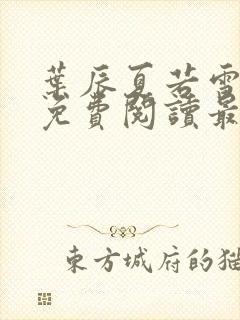 葉辰夏若雪
免費閱讀最
東方城府的